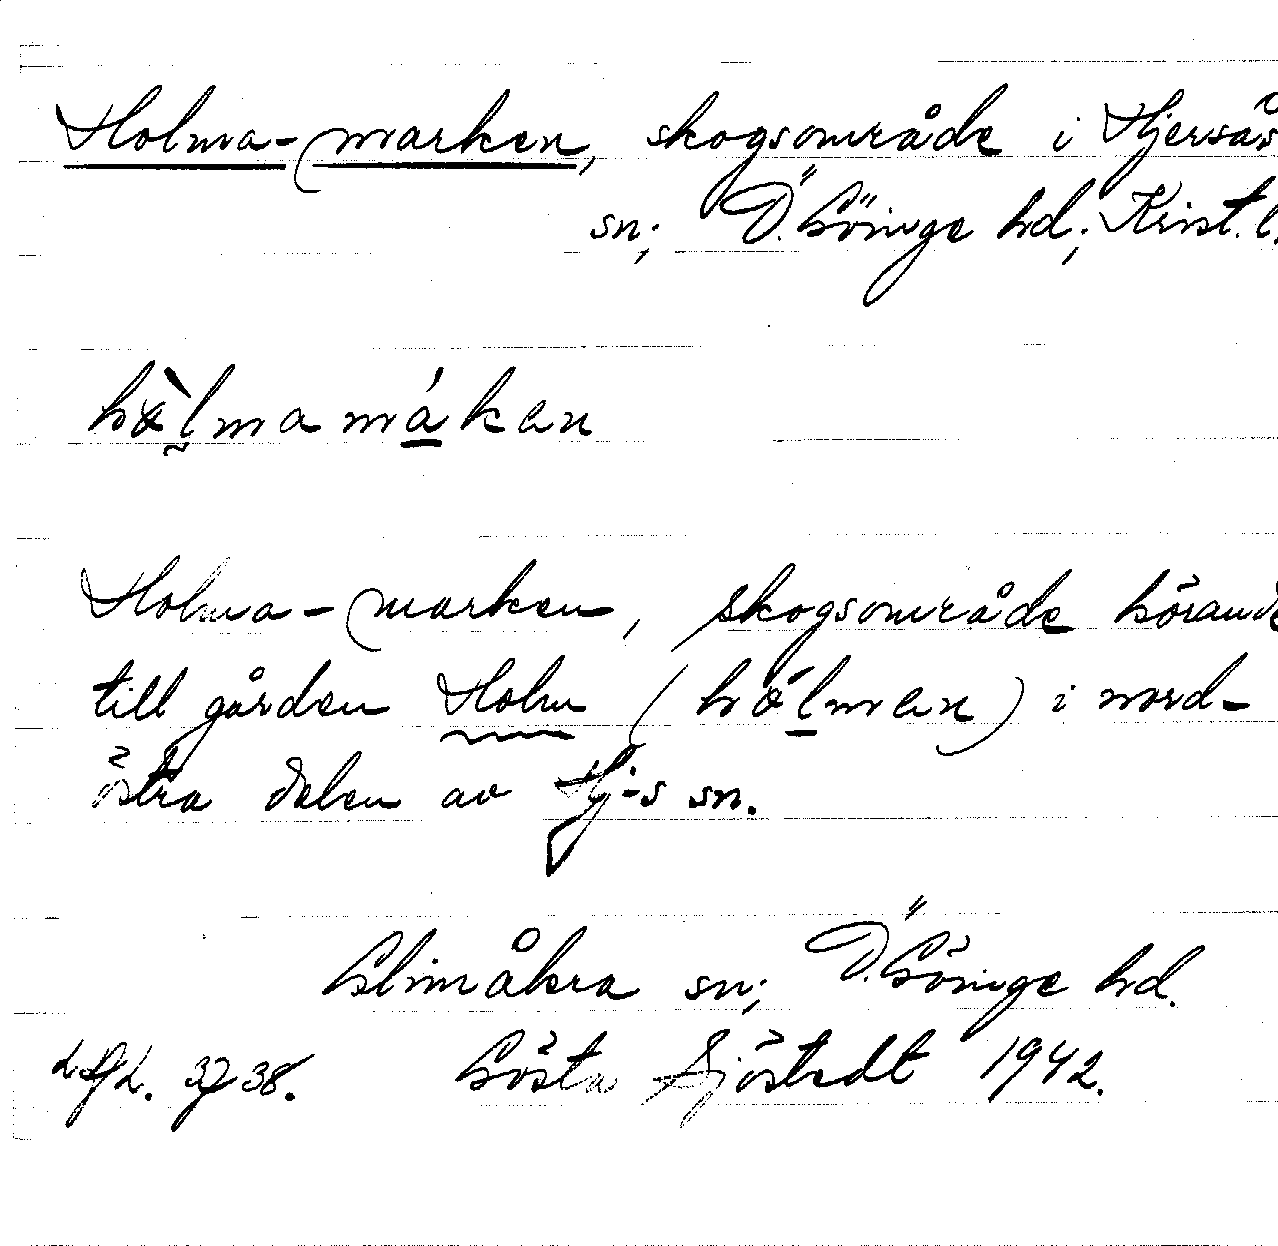 Holma-marken, skogsområde i Hjersås
sn; Ö. Göinge hd; Krist. l.
hòlmamáken
Holma-marken, skogsområde hörande
till gården Holm (hólmen) i nord-
östra delen av Hj-s sn.
Glimåkra sn; Ö. Göinge hd.
38. Gösta Sjöstedt 1942.